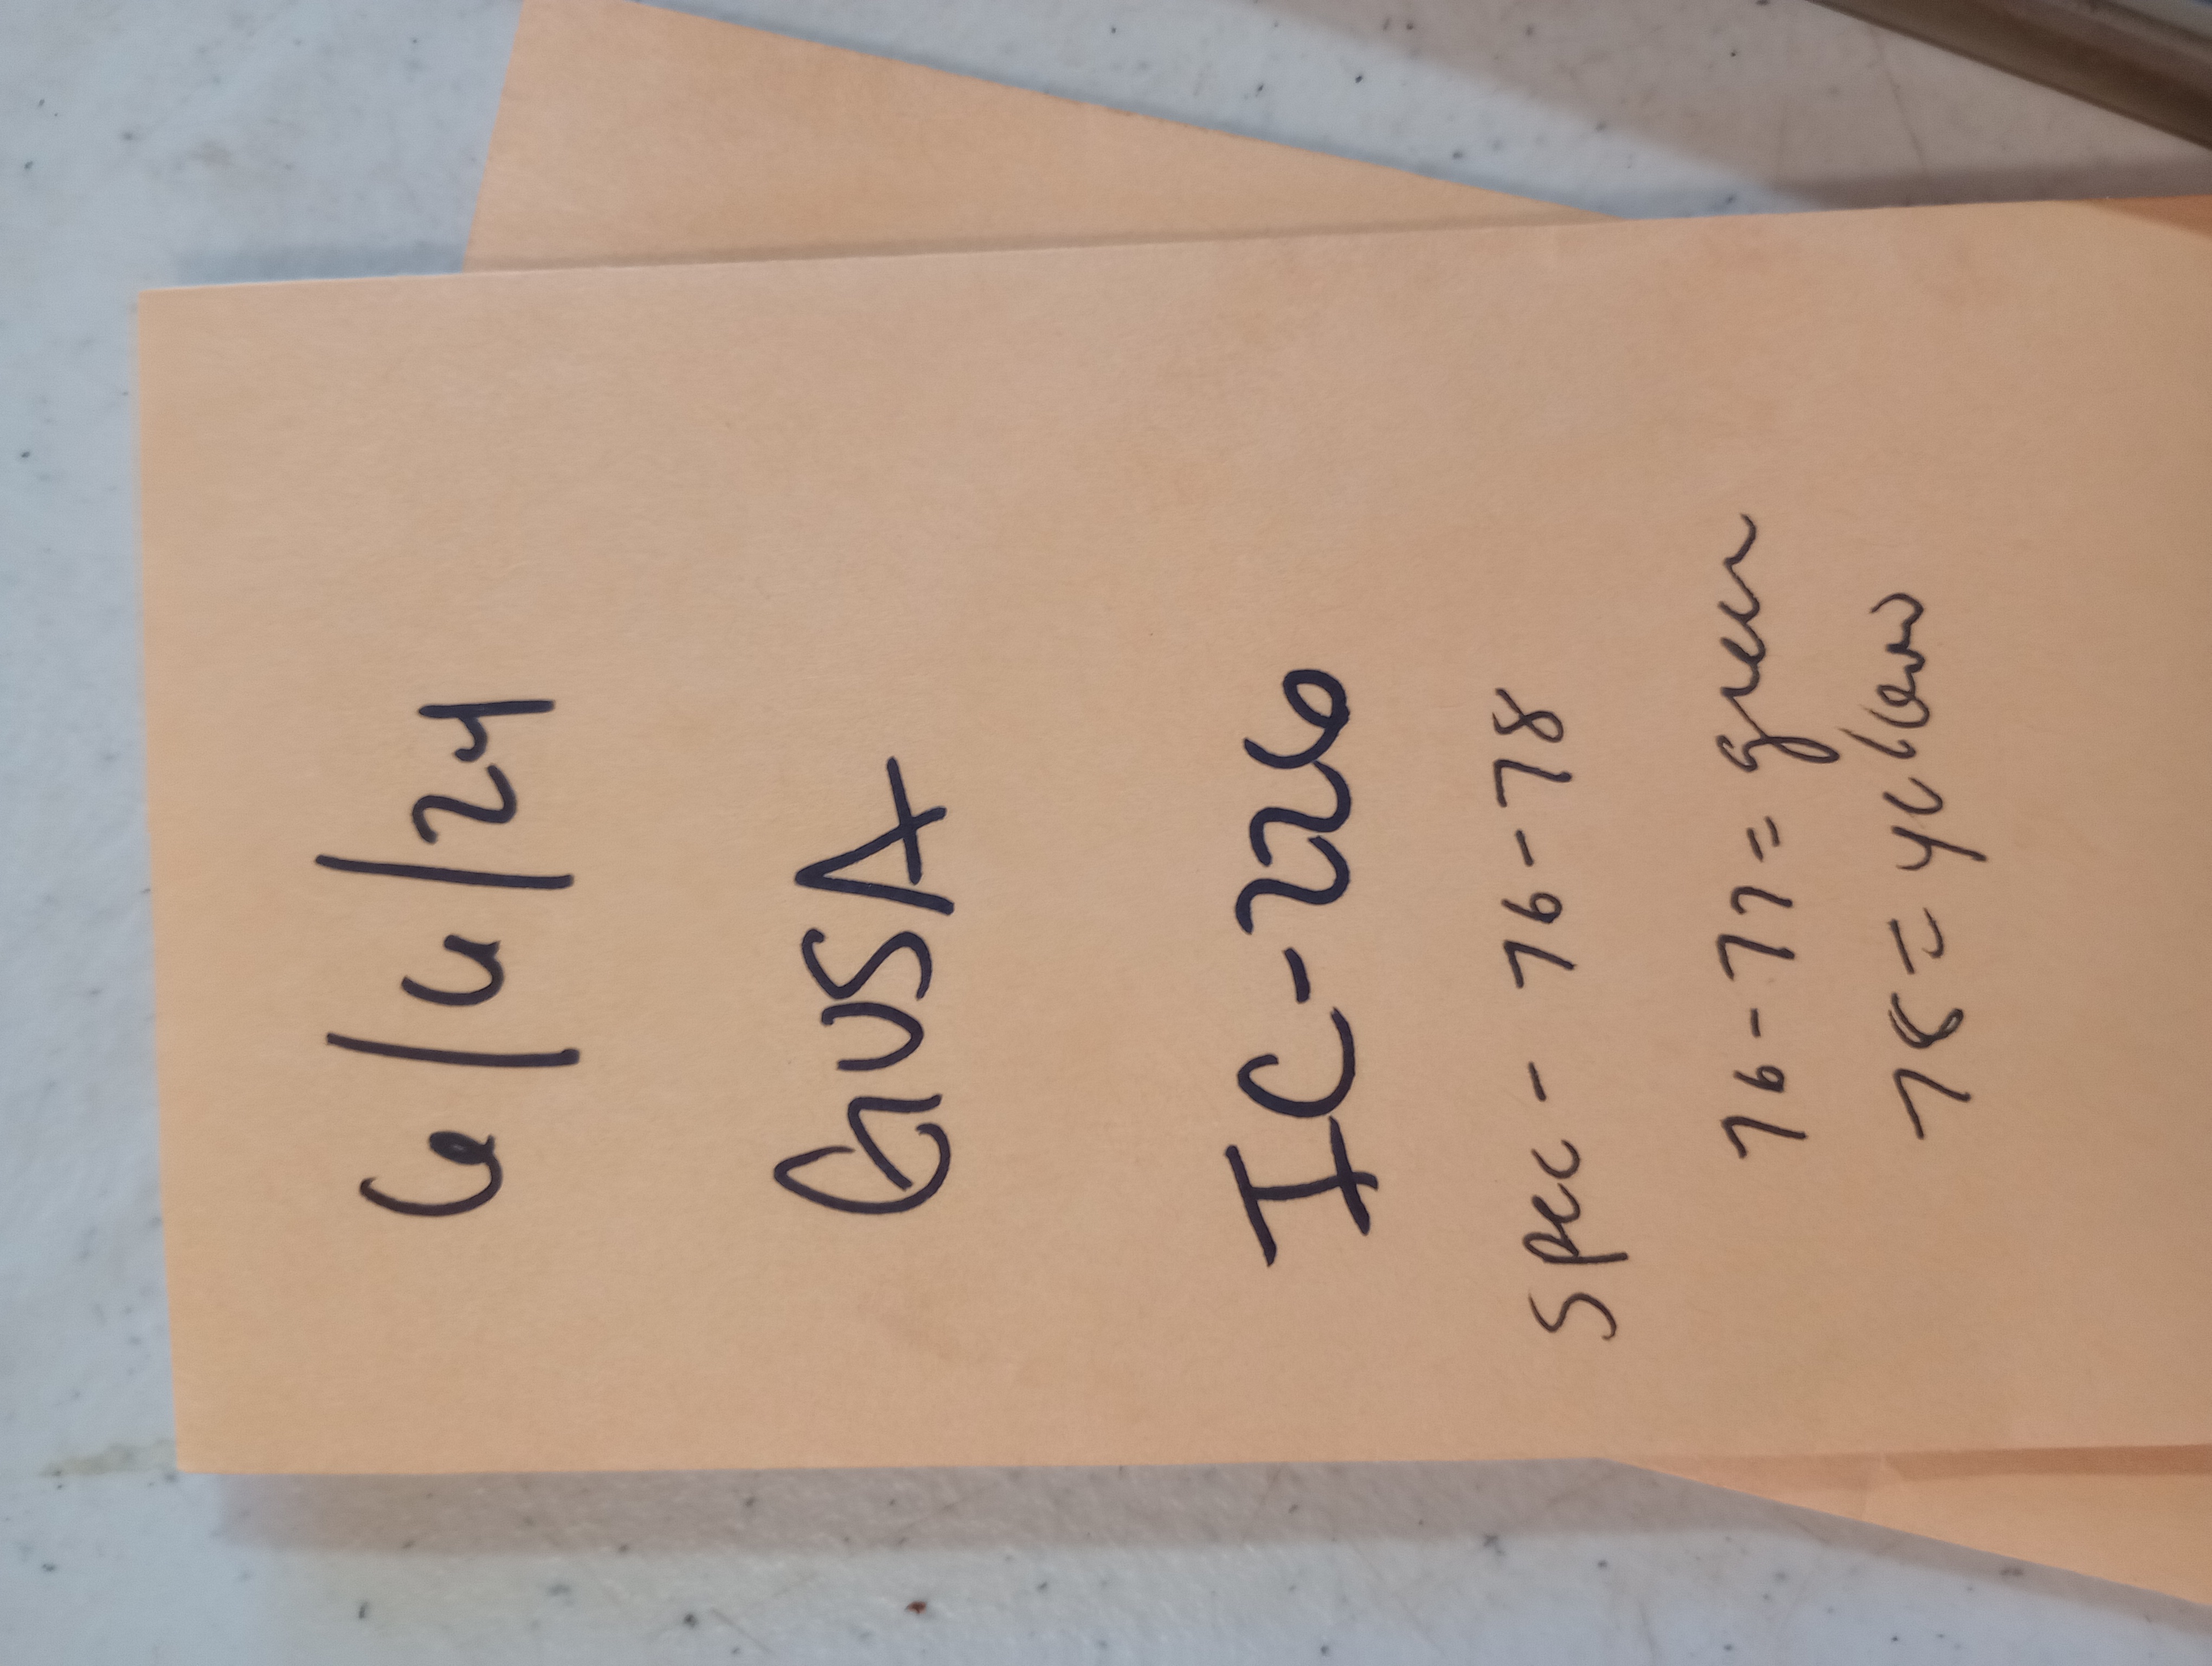 6/6/24
GUSA
IC-226
Spec - 76-78
76-77 = green
78 = yellow